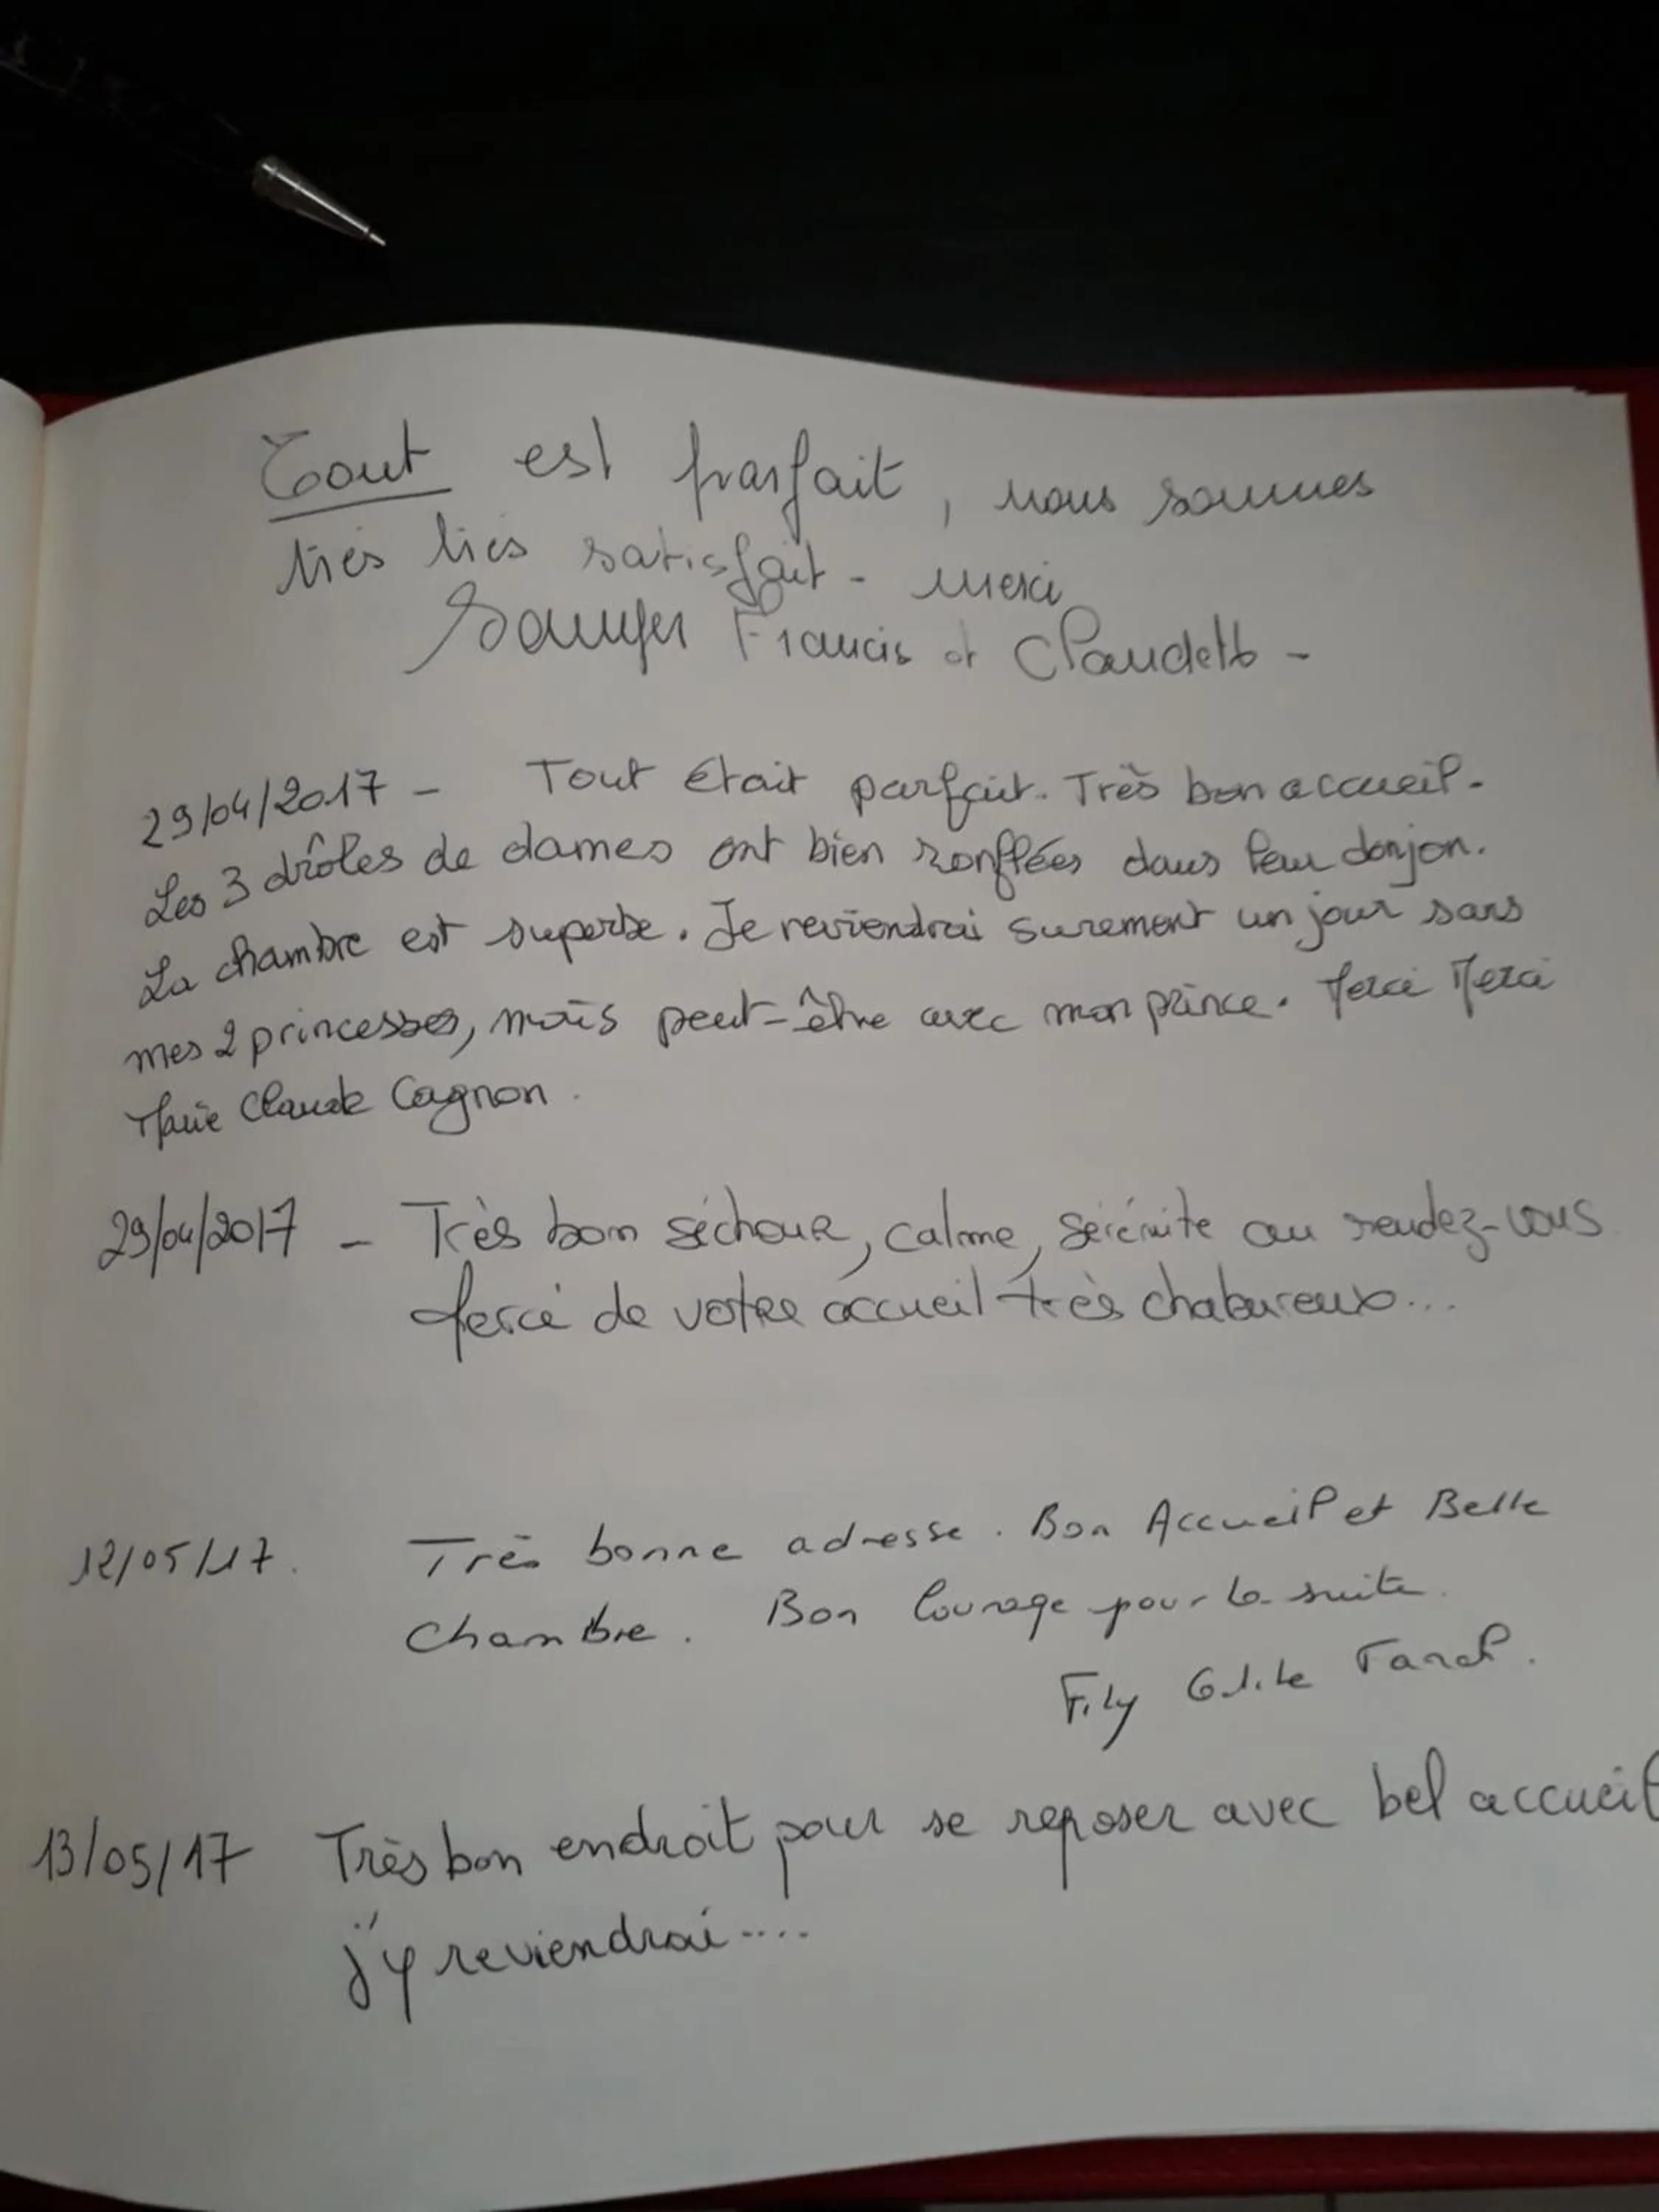 Tout est parfait, nous sommes
très très satisfait - merci
Francis et Claudette -
29/04/2017 - Tout était parfait. Très bon accueil.
Les 3 drôles de dames ont bien ronflées dans leur donjon.
La chambre est superbe. Je reviendrai surement un jour sans
mes 2 princesses, mais peut-être avec mon prince. Merci Merci
Marie Claude Cagnon.
29/04/2017 - Très bon séchour, calme, sérénite au rendez-vous
Merci de votre accueil très chalaureux...
12/05/17. Très bonne adresse. Bon Accueil et Belle
Chambre. Bon Courage pour la suite.
Fily
13/05/17 Très bon endroit pour se reposer avec bel accueil
j'y reviendrai....